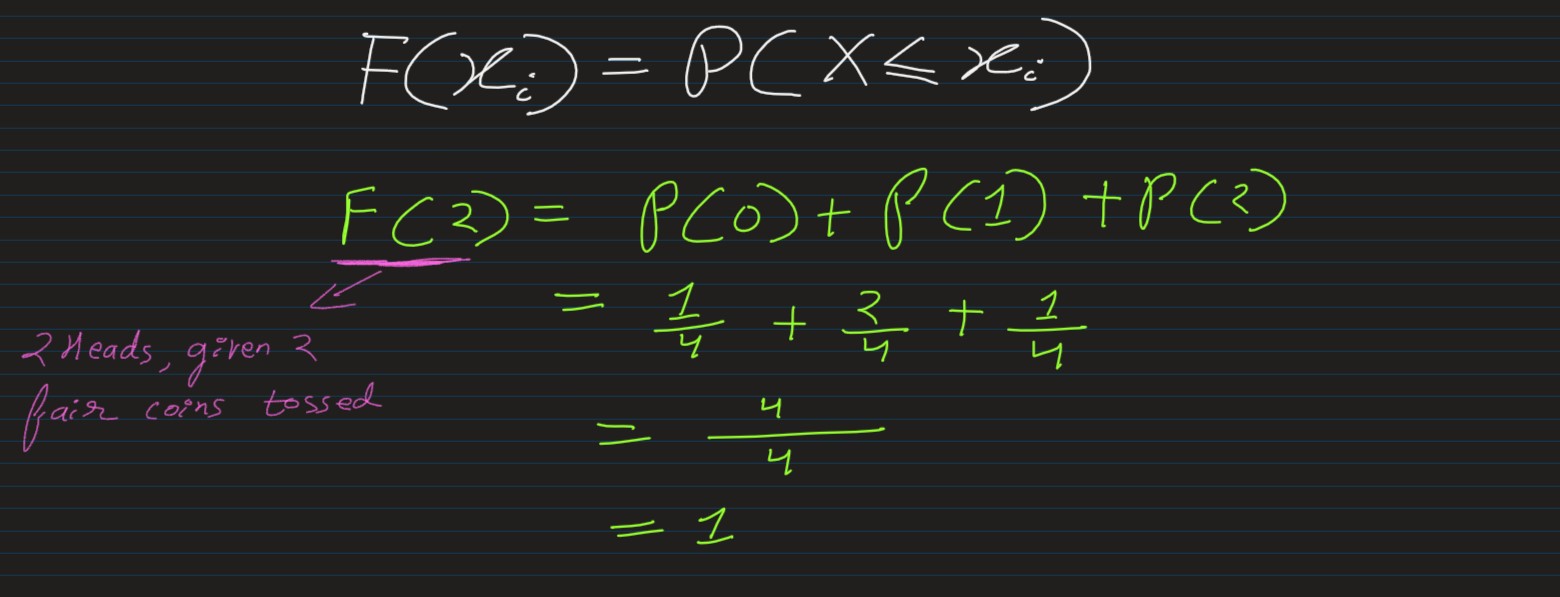 F(xᵢ) = P(X ≤ xᵢ)
F(2) = P(0) + P(1) + P(2)
= 1/4 + 2/4 + 1/4
2 Heads, given 2
fair coins tossed
= 4/4
= 1